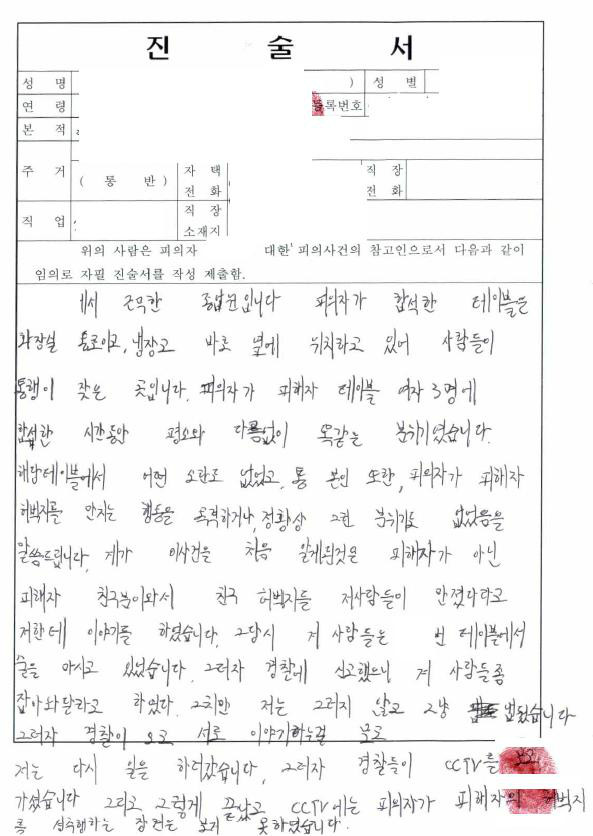 진 술 서
성 명 ) 성 별
연 령 등록번호
본 적
주 거 ( 통 반 ) 자 택 전 화 직 장 전 화
직 업 직 장 소재지
위의 사람은 피의자 대한 피의사건의 참고인으로서 다음과 같이
임의로 자필 진술서를 작성 제출함.
에서 근무한 종업원입니다 피의자가 합석한 테이블은
화장실 통로이고, 냉장고 바로 옆에 위치하고 있어 사람들이
통행이 잦은 곳입니다. 피의자가 피해자 테이블 여자 3명에
합석한 시간동안 평소와 다름없이 똑같은 분위기였습니다.
해당테이블에서 어떤 소란도 없었고, 통 본인 또한, 피의자가 피해자
허벅지를 만지는 행동을 목격하거나, 정황상 그런 분위기도 없었음을
말씀드립니다, 제가 이사건을 처음 알게된것은 피해자가 아닌
피해자 친구분이와서 친구 허벅지를 저사람들이 만졌다라고
저한테 이야기를 하였습니다. 그당시 저 사람들은 번 테이블에서
술을 마시고 있었습니다. 그러자 경찰에 신고했으니 저 사람들좀
잡아와달라고 하였다. 그치만 저는 그러지 않고 그냥 있었습니다
그러자 경찰이 오고 서로 이야기하는걸 보고
저는 다시 일을 하러갔습니다, 그러자 경찰들이 CCTV를 보고
가셨습니다 그리고 그렇게 끝났고 CCTV에는 피의자가 피해자의 허벅지
를 성추행하는 장면은 보지 못하였습니다.